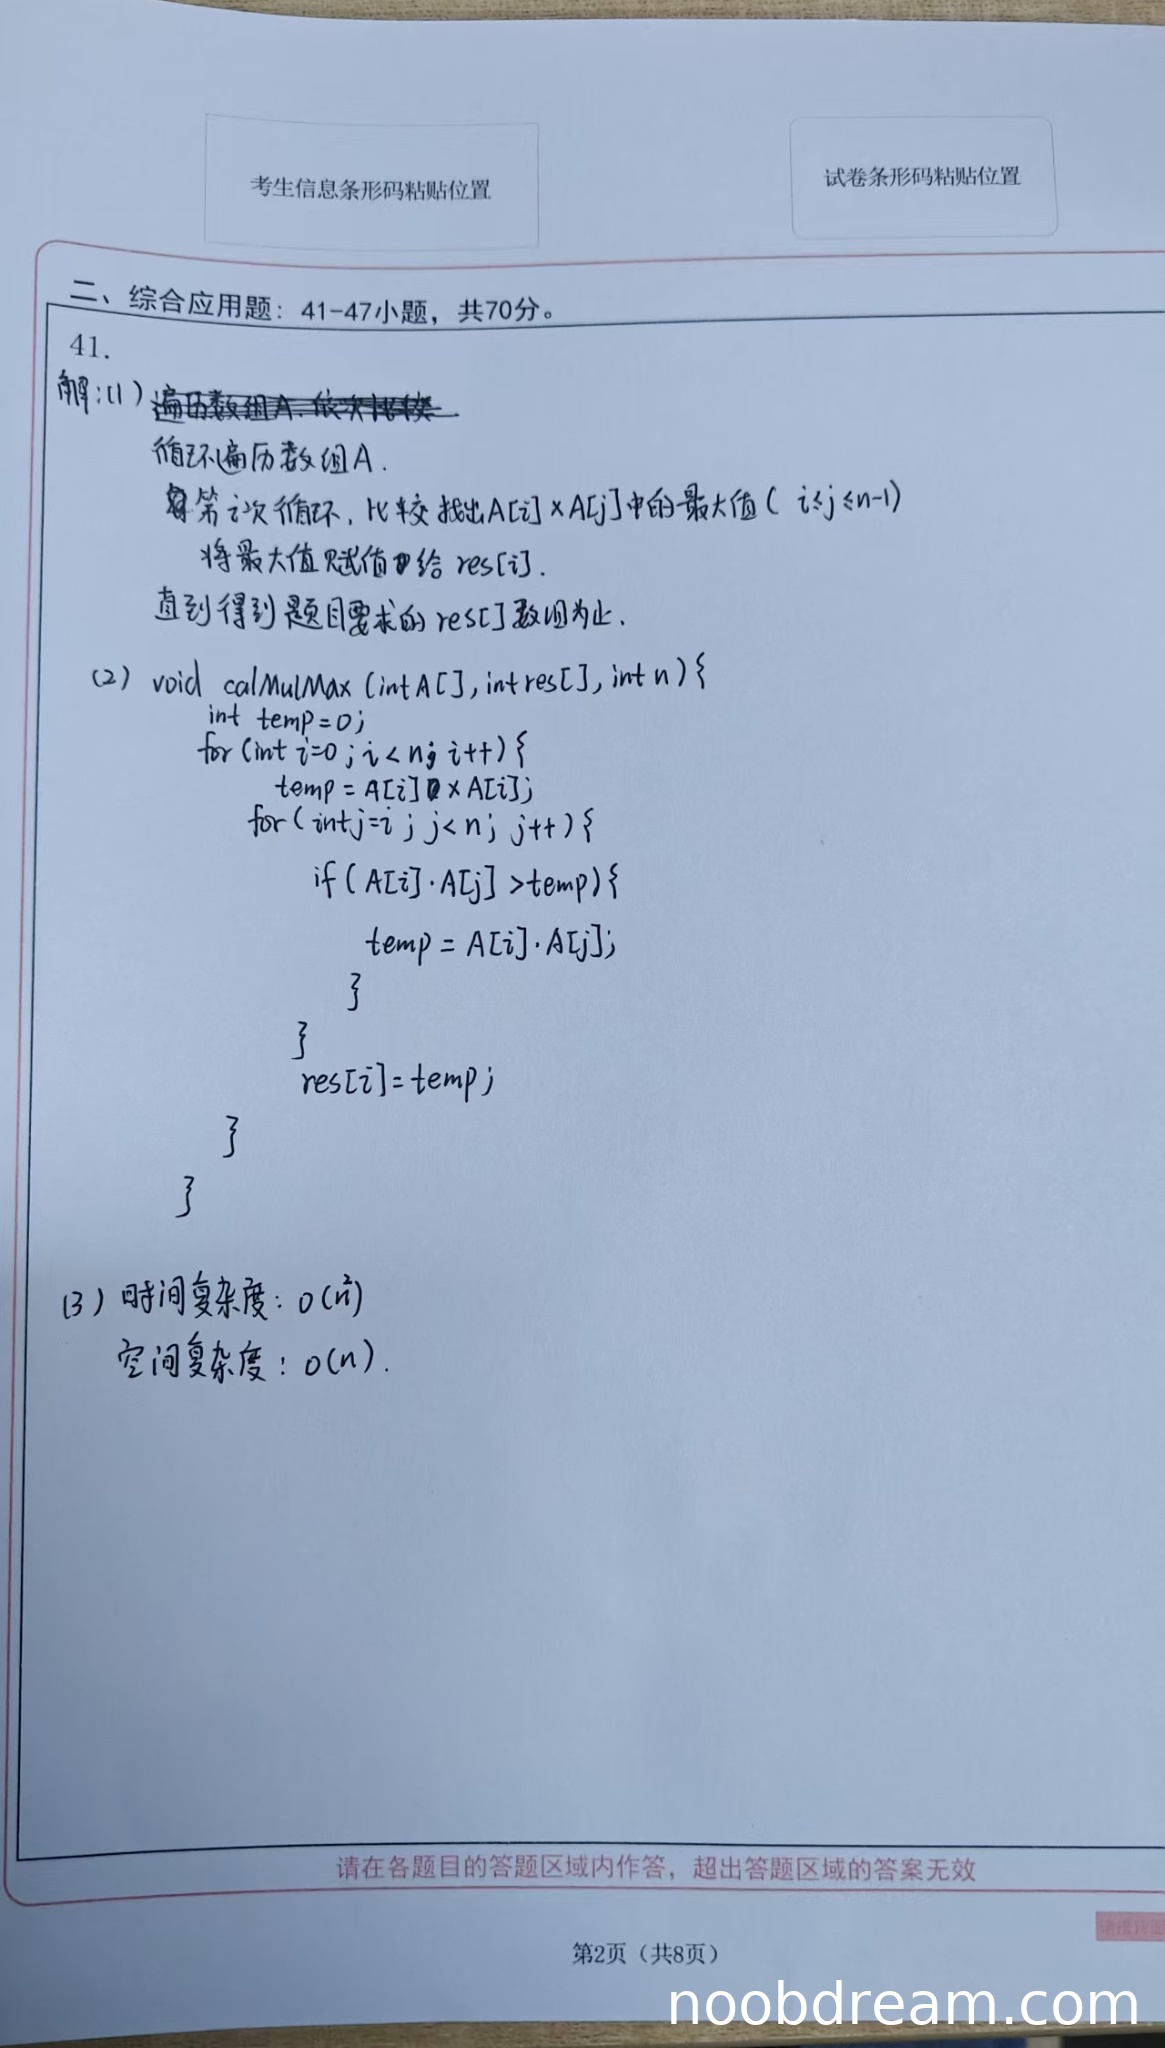 考生信息条形码粘贴位置
试卷条形码粘贴位置
二、综合应用题：41-47小题，共70分。
41.
解:(1) 遍历数组A.依次比较
循环遍历数组A.
第i次循环，比较找出A[i]×A[j]中的最大值( i≤j≤n-1)
将最大值赋值给 res[i].
直到得到题目要求的res[]数组为止.
(2) void calMulMax (int A[], int res[], int n){
int temp=0;
for (int i=0; i<n; i++){
temp = A[i] × A[i];
for(int j=i; j<n; j++){
if(A[i]·A[j] >temp){
temp = A[i]·A[j];
}
}
res[i]=temp;
}
}
(3) 时间复杂度: O(n²)
空间复杂度: O(n).
请在各题目的答题区域内作答，超出答题区域的答案无效
第2页（共8页）
noobdream.com